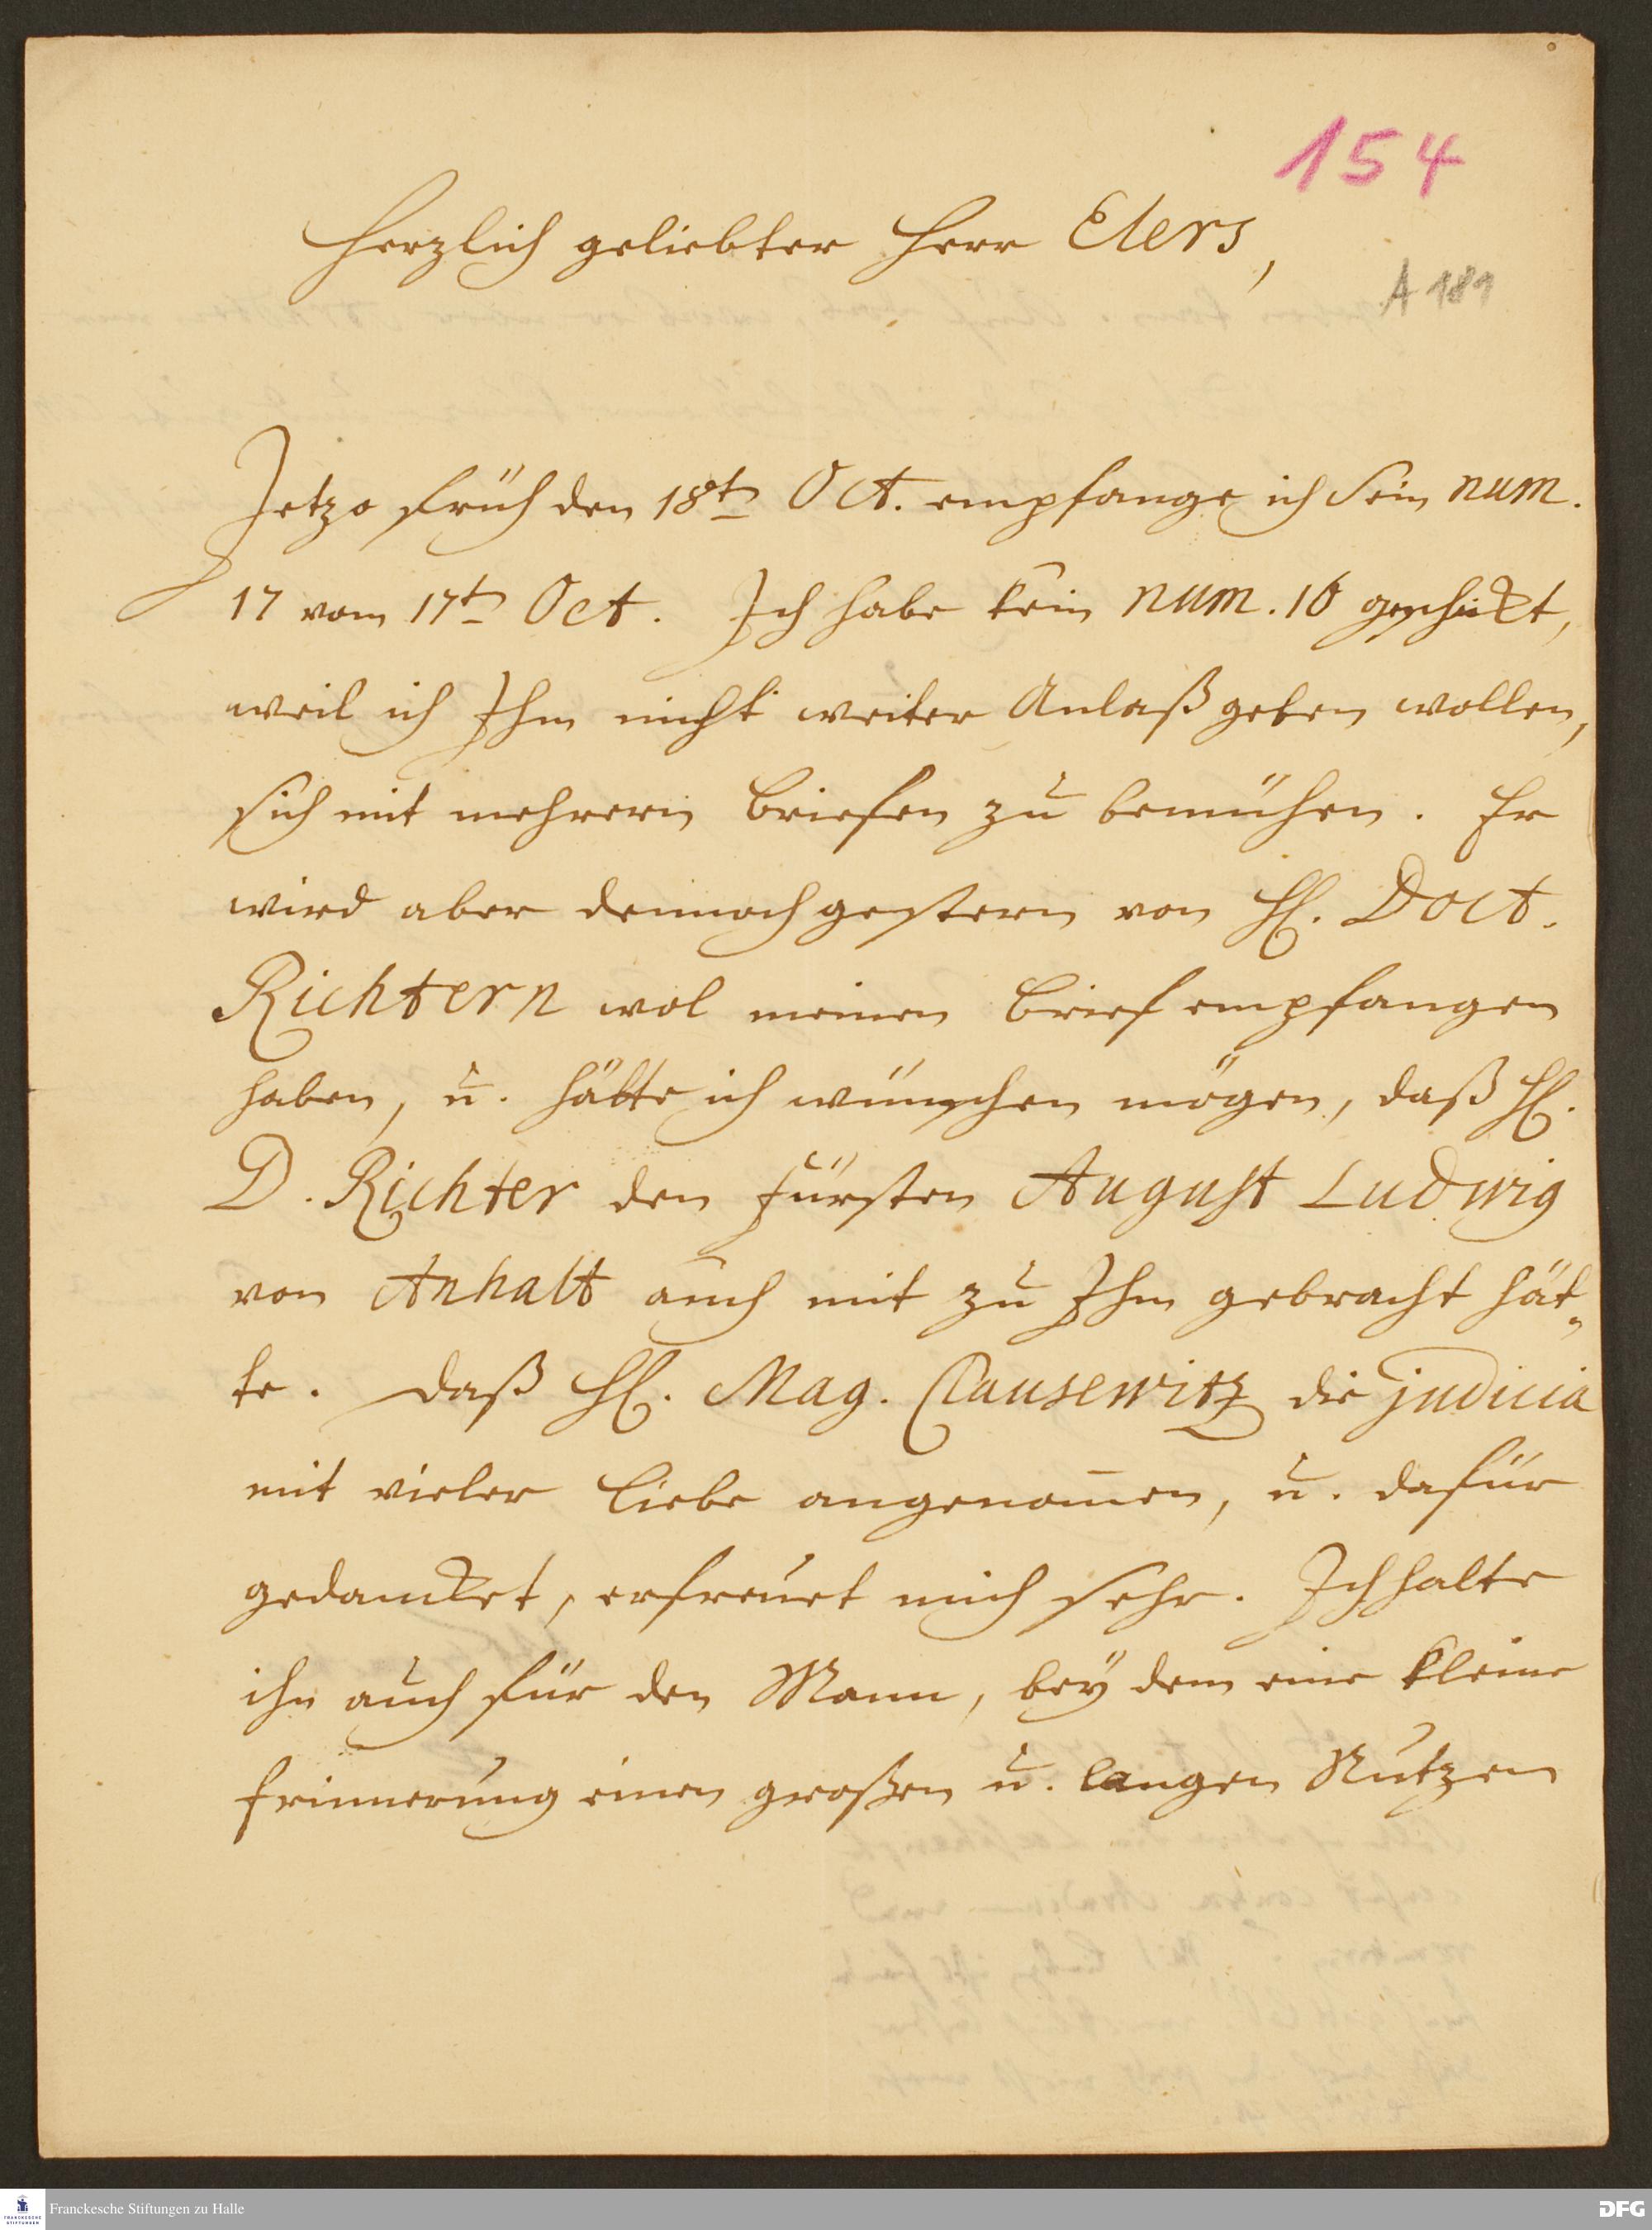 154
Herzlich geliebter Herr Elers,
A 181
Jetzo früh den 18ten Oct. empfange ich Sein num.
17 vom 17ten Oct. Ich habe kein num. 16 geschickt,
weil ich Ihm nicht weiter Anlaß geben wollen,
sich mit mehrern Briefen zu bemühen. Er
wird aber dennoch gestern von H. Doct.
Richtern wol meinen Brief empfangen
haben, u. hätte ich wünschen mögen, daß H.
D. Richter den Fürsten August Ludwig
von Anhalt auch mit zu Ihm gebracht hät„
te. Daß H. Mag. Clausewitz die judicia
mit vieler Liebe angenom̄en, u. dafür
gedancket, erfreuet mich sehr. Ich halte
ihn auch für den Mann, bey dem eine kleine
Erinnerung einen großen u. langen Nutzen
Franckesche Stiftungen zu Halle
FRANCKESCHE STIFTUNGEN
DFG